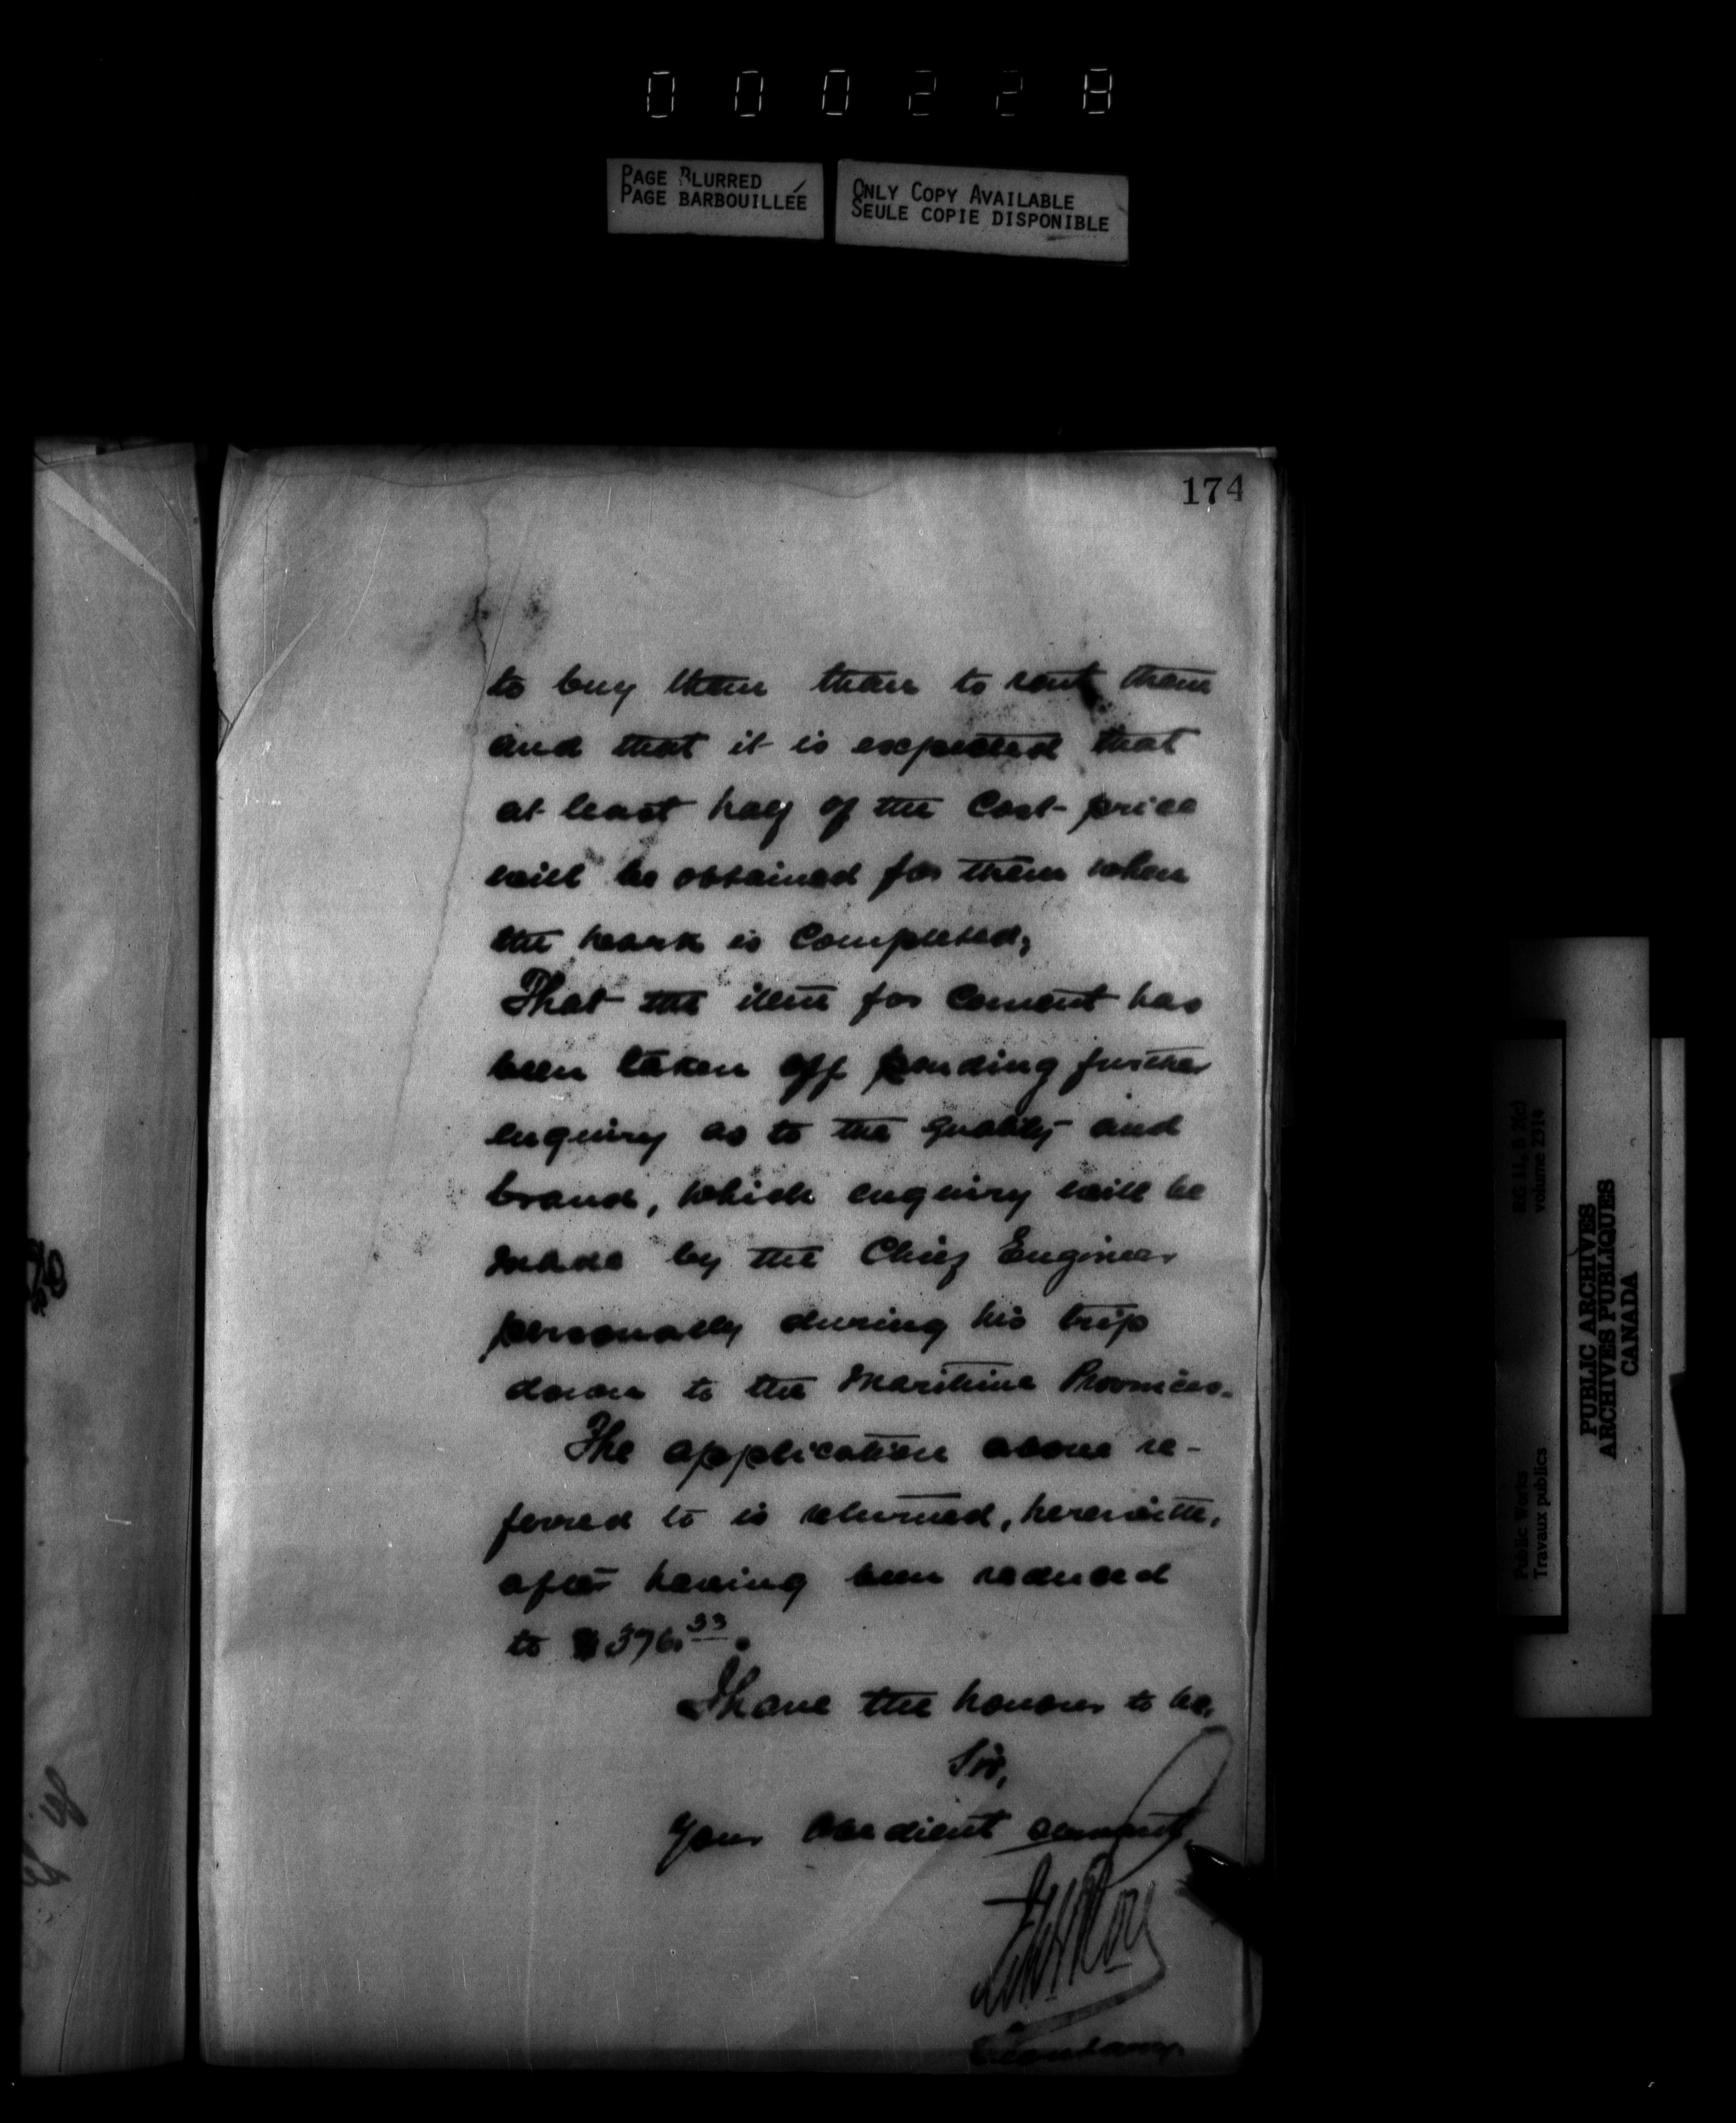 000228
PAGE BLURRED
PAGE BARBOUILLÉE
ONLY COPY AVAILABLE
SEULE COPIE DISPONIBLE
174
to buy them than to rent them
and that it is expected that
at least half of the Cost-price
will be obtained for them when
the work is Completed;
That the item for Cement has
been taken off pending further
enquiry as to the quality and
brand, which enquiry will be
made by the Chief Engineer
personally during his trip
down to the Maritime Provinces.
The application above re-
ferred to is returned, herewith,
after having been reduced
to $376.33.
I have the honour to be,
Sir,
Your obedient servant,
Secretary.
RG 11, B 2(c)
volume 2914
Public Works
Travaux publics
PUBLIC ARCHIVES
ARCHIVES PUBLIQUES
CANADA